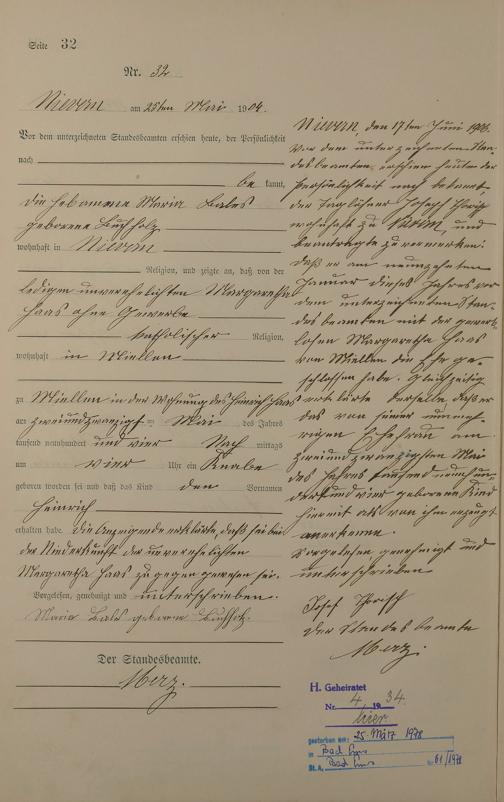 Seite 32
Nr. 32
Nievern am 25ten Mai 1904.
Vor dem unterzeichneten Standesbeamten erschien heute, der Persönlichkeit
nach
be kannt,
die Hebamme Maria Bales
geborene Buchholz
wohnhaft in Nievern
Religion, und zeigte an, daß von der
ledigen unverehelichten Margaretha
Haas ohne Gewerbe
katholischer Religion,
wohnhaft in Miellen
zu Miellen in der Wohnung des Heinrich Haas
am zweiundzwanzigsten Mai des Jahres
tausend neunhundert und vier Nach mittags
um vier Uhr ein Knabe
geboren worden sei und daß das Kind den Vornamen
Heinrich
erhalten habe. Die Anzeigende erklärte, daß sie bei
der Niederkunft der unverehelichten
Margaretha Haas zugegen gewesen sei.
Vorgelesen, genehmigt und unterschrieben.
Maria Bales geborene Buchholz
Der Standesbeamte.
Merz.
Nievern, den 17ten Juni 1906.
Vor dem unterzeichneten Stan-
desbeamten erschien heute der
Persönlichkeit nach bekannt
der Taglöhner Joseph
wohnhaft zu Nievern, und
beantragte zu vermerken:
daß er am neunzehnten
Januar dieses Jahres vor
dem unterzeichneten Stan-
desbeamten mit der gewerb-
losen Margaretha Haas
von Miellen die Ehe ge-
schlossen habe. Gleichzeitig
erklärte derselbe daß er
das von seiner nunmeh-
rigen Ehefrau am
zweiundzwanzigsten Mai
des Jahres tausend neunhun-
dert und vier geborene Kind
hiermit als von ihm erzeugt
anerkenne.
Vorgelesen, genehmigt und
unterschrieben
Josef
Der Standesbeamte
Merz.
H. Geheiratet
Nr. 4 1934
hier
gestorben am: 25. März 1978
in Bad Ems
St. A. Bad Ems Nr. 61/1978